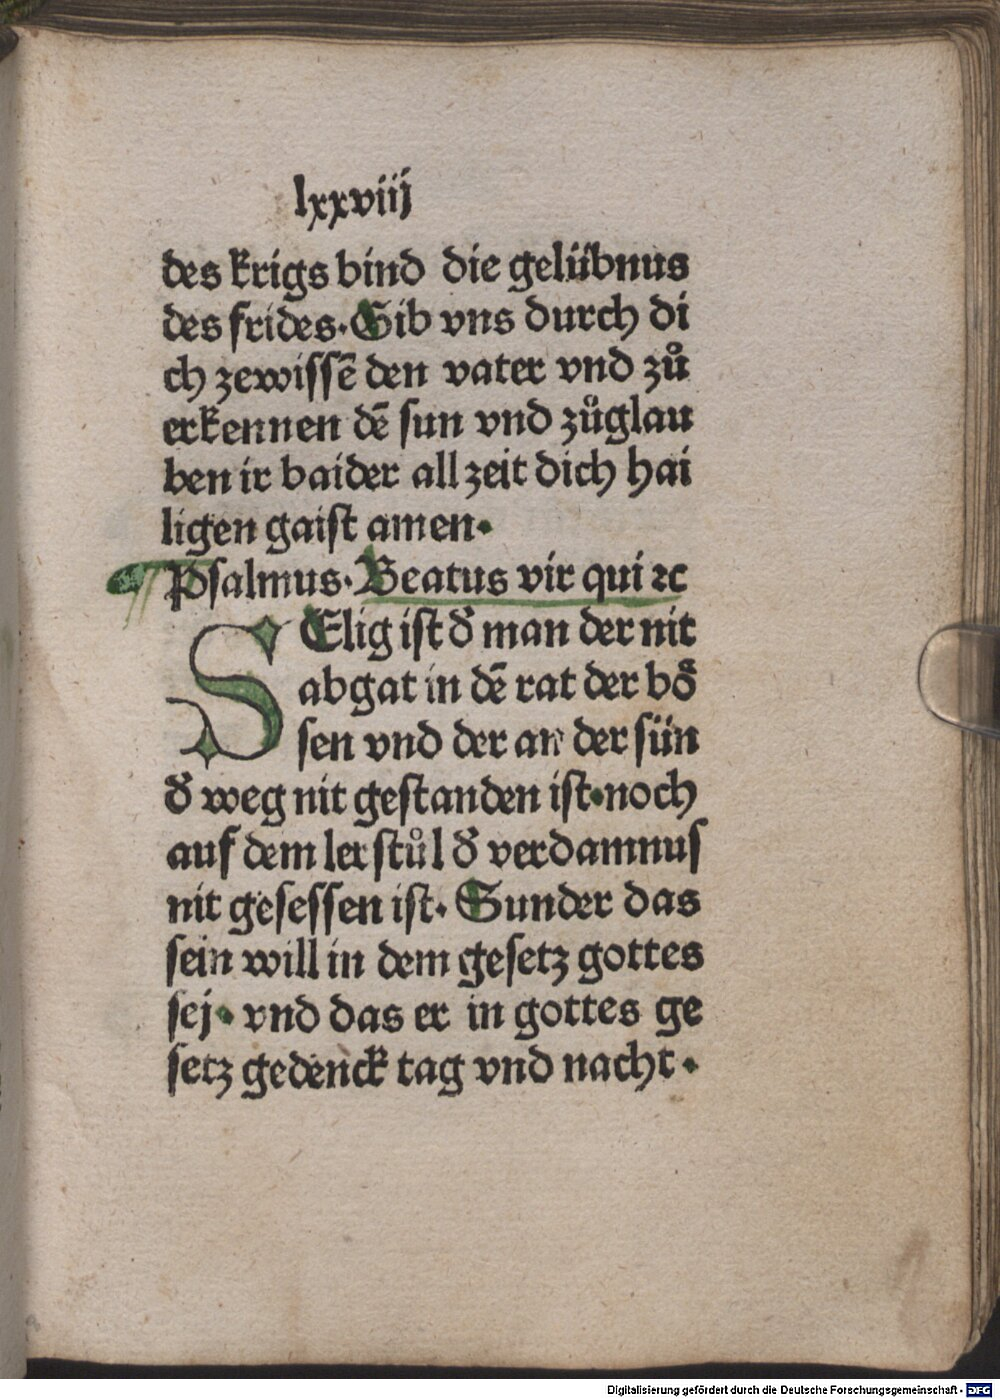 lxxviij
des krigs bind die gelübnus
des frides. Gib vns durch di
ch zewissē den vater vnd zů
erkennen dē sun vnd zůglau
ben ir baider all zeit dich hai
ligen gaist amen.
Psalmus. Beatus vir qui ꝛc
SElig ist đ man der nit
abgat in dē rat der bö
sen vnd der an der sün
đ weg nit gestanden ist. noch
auf dem ler stůl đ verdamnus
nit gesessen ist. Sunder das
sein will in dem gesetz gottes
sej. vnd das er in gottes ge
setz gedenck tag vnd nacht.
Digitalisierung gefördert durch die Deutsche Forschungsgemeinschaft - DFG